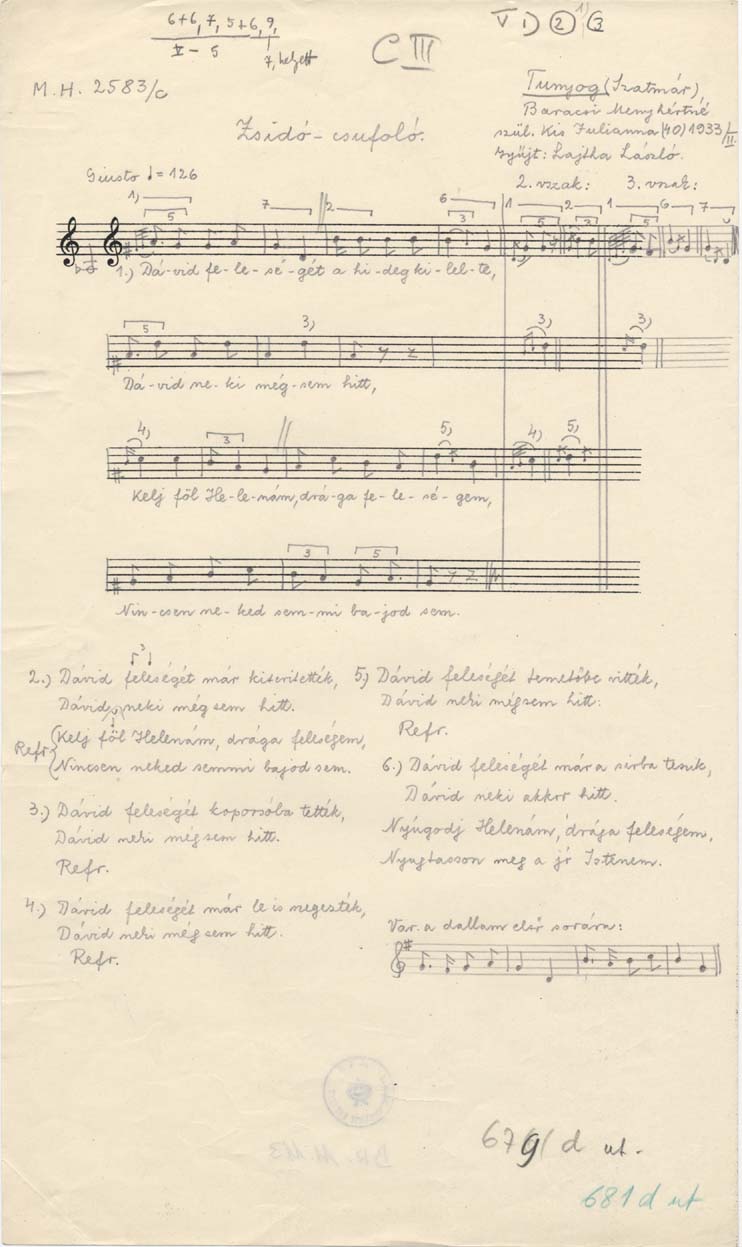 6+6, 7, 5+6, 9,
V - 5
7, helyett
C III
V 1) 2 3
1)
M.H. 2583/c
Tunyog (Szatmár),
Baracsi Menyhértné
szül. Kis Julianna (40) 1933/II.
Gyűjt: Lajtha László.
Zsidó-csufoló.
Giusto ♩= 126
2. vszak: 3. vszak:
1) 5 7 2 6 3 1 5 2 1 5 6 7
1.) Dá-vid fe-le-sé-gét a hi-deg ki-lel-te,
5 3) 3) 3)
Dá-vid ne-ki még-sem hitt,
4) 3 5) 4) 5)
Kelj föl He-le-nám, drá-ga fe-le-sé-gem,
3 5
Nin-csen ne-ked sem-mi ba-jod sem.
3
2.) Dávid feleségét már kiterítették,
Dávid neki mégsem hitt.
Refr. Kelj föl Helenám, drága feleségem,
Nincsen neked semmi bajod sem.
3.) Dávid feleségét koporsóba tették,
Dávid neki mégsem hitt.
Refr.
4.) Dávid feleségét már le is szegezték,
Dávid neki mégsem hitt.
Refr.
5.) Dávid feleségét temetőbe vitték,
Dávid neki mégsem hitt:
Refr.
6.) Dávid feleségét már a sirba teszik,
Dávid neki akkor hitt.
Nyúgodj Helenám, drága feleségem,
Nyugtasson meg a jó Istenem.
Var. a dallam első sorára:
679/d ut.
681 d ut